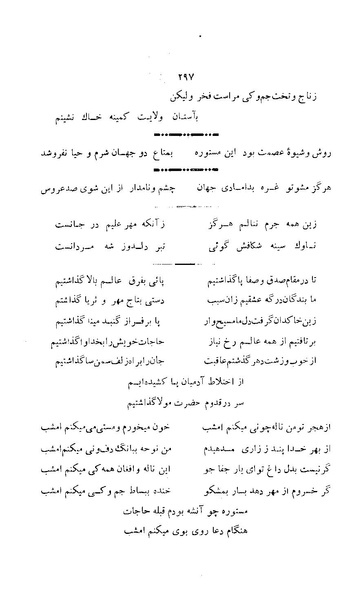 ۲۹۷
زتاج وتخت جم وکی مراست فخر ولیکن
بآستان ولایت کمینه خاک نشینم
روش وشیوهٔ عصمت بود این مستوره بمتاع دو جهان شرم و حیا نفروشد
هرگز مشوتو غره بدامادی جهان چشم ونامدار از این شوی صدعروس
زین همه جرم ننالم هرگز زآنکه مهر علیم در جانست
ناوک سینه شکافش گوئی تیر دلدوز شه مردانست
تا در مقام صدق وصفا پاگذاشتیم پائی بفرق عالم بالا گذاشتیم
ما بندگان درگه عشقیم زان سبب دستی بتاج مهر و ثریا گذشتم
زین خاکدان گرفت دل ما مسیح وار پا برفراز گنبد مینا گذاشتیم
برتافتیم از همه عالم رخ نیاز حاجات خویش را بخدا واگذاشتیم
از خوب وزشت دهر گذشتم عاقبت جان را براه زلف سمن ساگذاشتیم
از اختلاط آدمیان پا کشیده‌ایم
سر در قدوم حضرت مولا گذاشتیم
ازهجر تو من ناله چونی میکنم امشب خون میخورم ومستی می میکنم امشب
از بهر خدا پند ز زاری مدهیدم من نوحه ببانگ دف ونی میکنم امشب
گر نیست بدل داغ توای یار جفا جو این ناله و افغان همه کی میکنم امشب
گر خسروم از مهر دهد بار بمشکو خنده ببساط جم وکسی میکنم امشب
مستوره چو آنشه بودم قبله حاجات
هنگام دعا روی بوی میکنم امشب